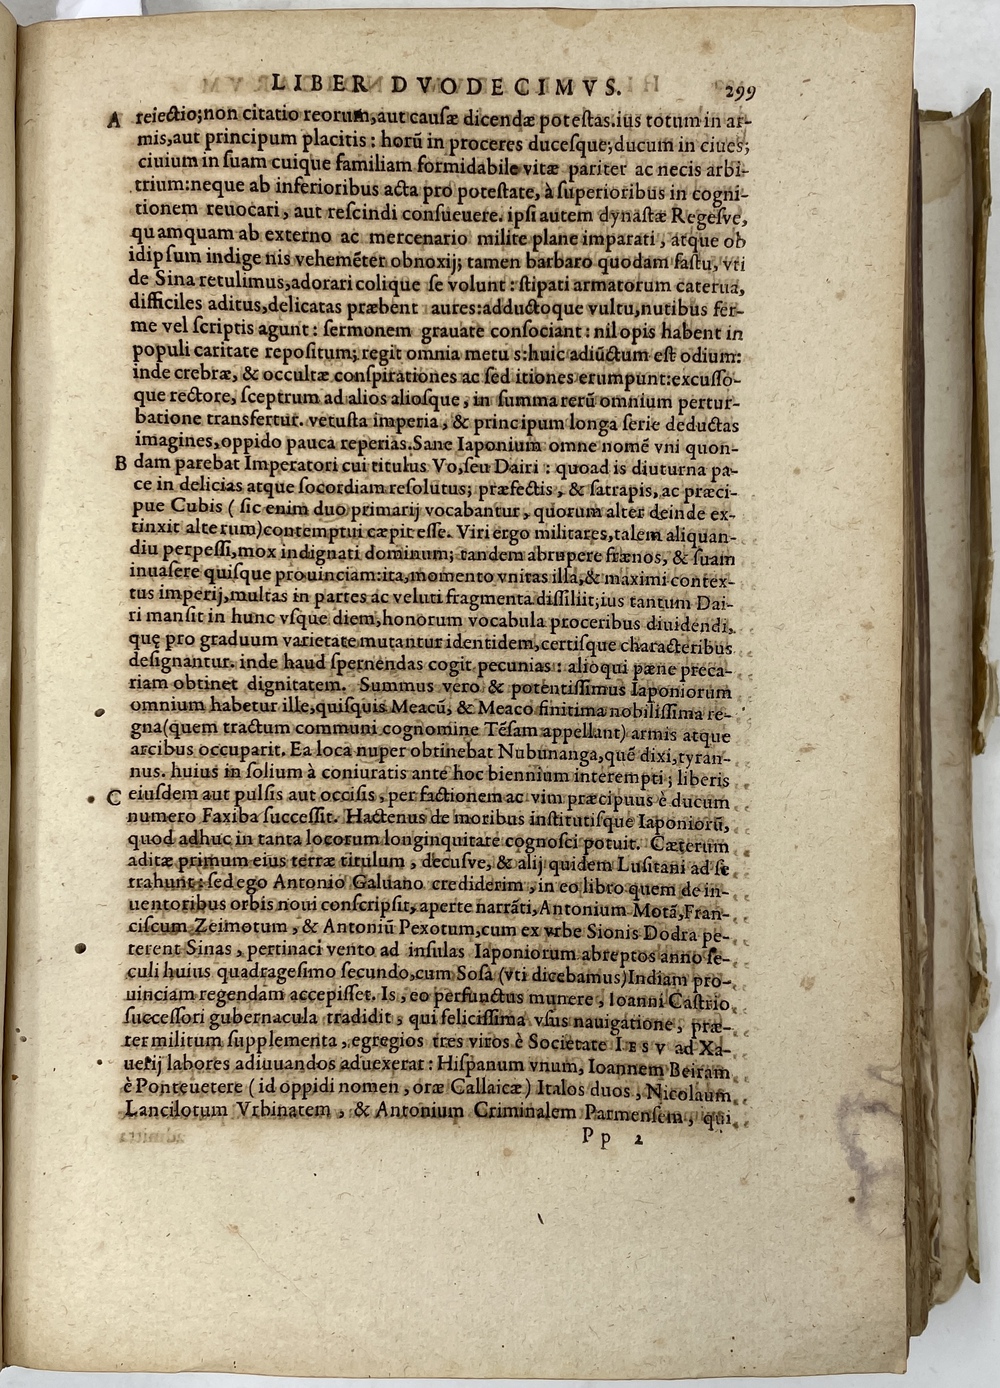 LIBER DVODECIMVS. 299
A reiectio;non citatio reorum,aut causæ dicendæ potestas.ius totum in ar-
mis,aut principum placitis : horũ in proceres ducesque;ducum in ciues;
ciuium in suam cuique familiam formidabile vitæ pariter ac necis arbi-
trium:neque ab inferioribus acta pro potestate, à superioribus in cogni-
tionem reuocari, aut rescindi consueuere. ipsi autem dynastæ Regesve,
quamquam ab externo ac mercenario milite plane imparati, atque ob
id ipsum indigenis vehemẽter obnoxij; tamen barbaro quodam fastu, vti
de Sina retulimus,adorari colique se volunt : stipati armatorum caterua,
difficiles aditus,delicatas præbent aures:adductoque vultu,nutibus fer-
me vel scriptis agunt : sermonem grauate consociant : nil opis habent in
populi caritate repositum; regit omnia metus:huic adiũctum est odium:
inde crebræ, & occultæ conspirationes ac seditiones erumpunt:excusso-
que rectore, sceptrum ad alios aliosque, in summa rerũ omnium pertur-
batione transfertur. vetusta imperia, & principum longa serie deductas
imagines,oppido pauca reperias.Sane Iaponium omne nomẽ vni quon-
B dam parebat Imperatori cui titulus Vo,seu Dairi : quoad is diuturna pa-
ce in delicias atque socordiam resolutus; præfectis, & satrapis, ac præci-
pue Cubis ( sic enim duo primarij vocabantur, quorum alter deinde ex-
tinxit alterum)contemptui cæpit esse. Viri ergo militares,talem aliquan-
diu perpessi,mox indignati dominum; tandem abrupere frænos, & suam
inuasere quisque prouinciam:ita,momento vnitas illa,& maximi contex-
tus imperij,multas in partes ac veluti fragmenta dissiliit;ius tantum Dai-
ri mansit in hunc vsque diem,honorum vocabula proceribus diuidendi,
quę pro graduum varietate mutantur identidem,certisque characteribus
designantur. inde haud spernendas cogit pecunias : alioqui pæne preca-
riam obtinet dignitatem. Summus vero & potentissimus Iaponiorum
omnium habetur ille,quisquis Meacũ, & Meaco finitima nobilissima re-
gna(quem tractum communi cognomine Tẽsam appellant) armis atque
arcibus occuparit. Ea loca nuper obtinebat Nubunanga,quẽ dixi,tyran-
nus. huius in solium à coniuratis ante hoc biennium interempti; liberis
C eiusdem aut pulsis aut occisis, per factionem ac vim præcipuus è ducum
numero Faxiba successit. Hactenus de moribus institutisque Iaponiorũ,
quod adhuc in tanta locorum longinquitate cognosci potuit. Cæterum
aditæ primum eius terræ titulum, decusve, & alij quidem Lusitani ad se
trahunt : sed ego Antonio Galuano crediderim, in eo libro quem de in-
uentoribus orbis noui conscripsit, aperte narrãti,Antonium Motã,Fran-
ciscum Zeimotum, & Antoniũ Pexotum,cum ex vrbe Sionis Dodra pe-
terent Sinas, pertinaci vento ad insulas Iaponiorum abreptos anno se-
culi huius quadragesimo secundo,cum Sosa (vti dicebamus)Indiam pro-
uinciam regendam accepisset. Is, eo perfunctus munere, Ioanni Castrio
successori gubernacula tradidit, qui felicissima vsus nauigatione, præ-
ter militum supplementa, egregios tres viros è Societate IESV ad Xa-
uerij labores adiuuandos aduexerat : Hispanum vnum, Ioannem Beiram
è Ponteuetere ( id oppidi nomen, oræ Callaicæ) Italos duos, Nicolaum
Lancilotum Vrbinatem, & Antonium Criminalem Parmensem, qui
Pp 2